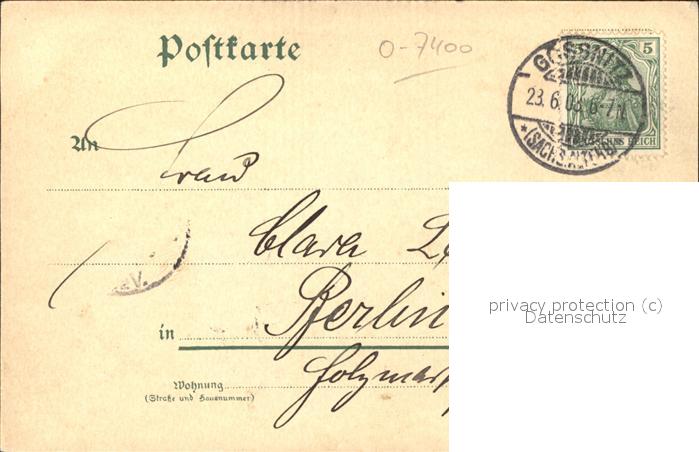 Postkarte
0-7400
5
GÖSSNITZ
23.6.03.6-7N.
* (SACHS.ALTENB.)
DEUTSCHES REICH
An
Frau
Clara
V.
in Berlin
Wohnung
(Straße und Hausnummer)
privacy protection (c)
Datenschutz